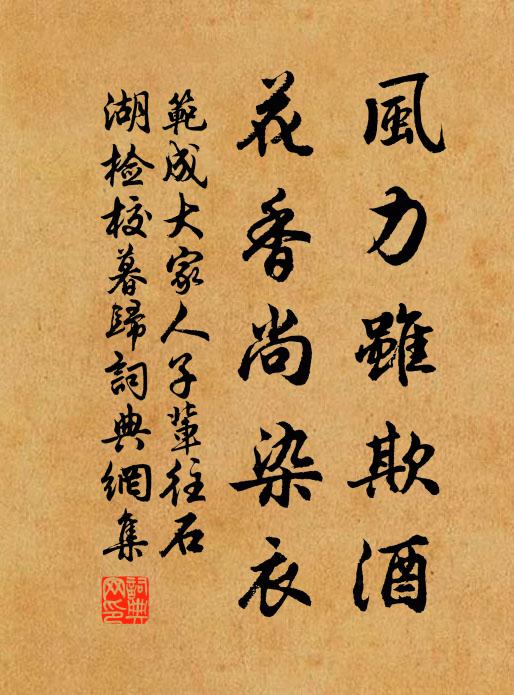 風力雖欺酒
花香尚染衣
範成大家人子輩往石
湖检校暮歸詞典網集
詞典網印